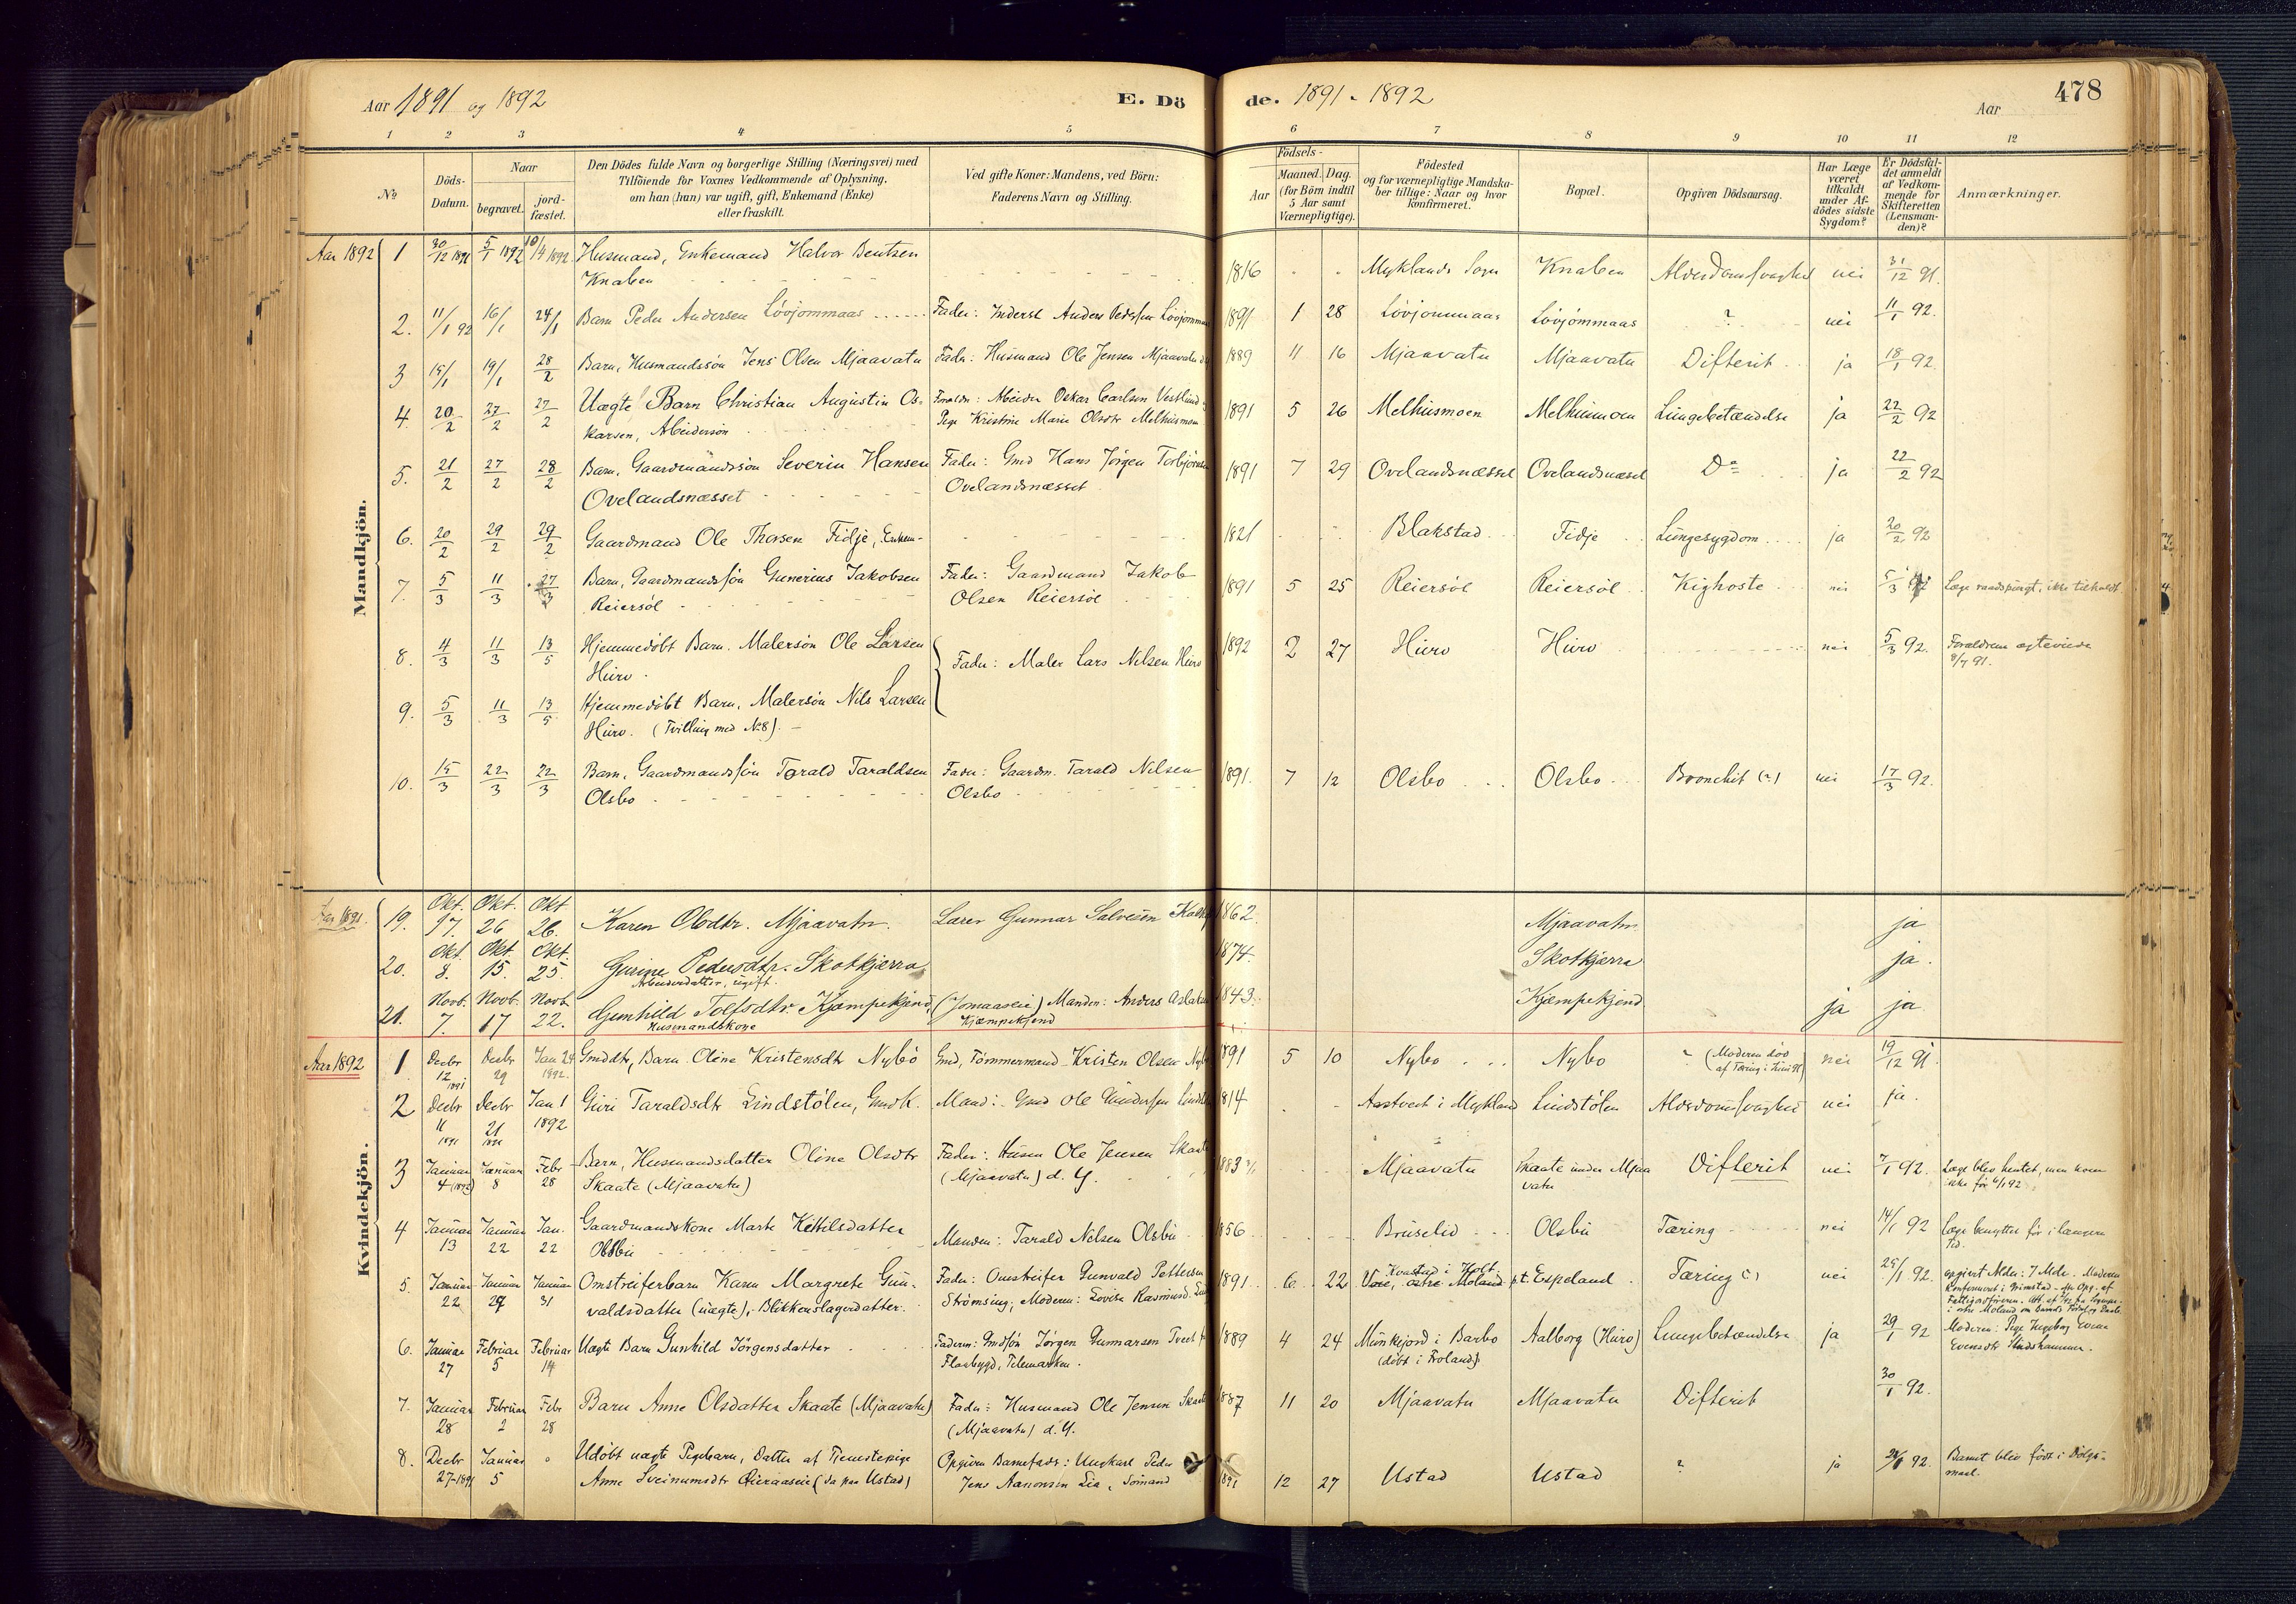 Aar 1891 og 1892
E. Dö
de. 1891 - 1892
Aar
478
1 2 3 4 5 6 7 8 9 10 11 12
No
Döds-Datum.
Naar
begravet.
jord-fæstet.
Den Dödes fulde Navn og borgerlige Stilling (Næringsvei) med
Tilföiende for Voxnes Vedkommende af Oplysning,
om han (hun) var ugift, gift, Enkemand (Enke)
eller fraskilt.
Ved gifte Koner: Mandens, ved Börn:
Faderens Navn og Stilling.
Födsels-
Aar
Maaned. Dag.
(for Börn indtil
5 Aar samt
Værnepligtige).
Födested
og for værnepligtige Mandska-
ber tillige: Naar og hvor
konfirmeret.
Bopæl.
Opgiven Dödsaarsag.
Har Læge
været
tilkaldt
under Af-
dödes sidste
Sygdom?
Er Dödsfal-
det anmeldt
af Vedkom-
mende for
Skifteretten
(Lensman-
den)?
Anmærkninger.
Mandkjön.
Aar 1892 1 30/12 1891 5/1 1892 10/4 1892 Husmand, Enkemand Halvor Bentsen 1816 Myklands Sogn Knaben Alderdomsvaghed nei 31/12 91.
Knaben
2. 11/1 92 16/1 24/1 Barn Peder Andersen Lövjommaas Fader: Inderst Anders Pedersen Lövjommaas 1891 1 28 Lövjommaas Lövjommaas ? nei 11/1 92.
3 15/1 19/1 28/2 Barn, Husmandssön Jens Olsen Mjaavatn Fader: Husmand Ole Jensen Mjaavatn 1889 11 16 Mjaavatn Mjaavatn Difterit ja 18/1 92.
4. 20/2 27/2 27/2 Uægte Barn Christian Augustin Os- Forældre: Arbeider Oskar Carlsen Vestlund 1891 5 26 Melhusmoen Melhusmoen Lungebetændelse ja 22/2 92
karsen, Arbeidersön Pige Kristine Marie Olsdtr Melhusmoen
5. 21/2 27/2 28/2 Barn, Gaardmandssön Severin Hansen Fader: Gmd Hans Jörgen Torbjörnsen 1891 7 29 Ovelandsnæsset Ovelandsnæsset Do ja 22/2 92
Ovelandsnæsset Ovelandsnæsset
6. 20/2 29/2 29/2 Gaardmand Ole Thorsen Fidje, Enkem- 1821 Blakstad Fidje Lungesygdom ja 20/2 92
7. 5/3 11/3 27/3 Barn, Gaardmandssön Gunerius Jakobsen Fader: Gaardmand Jakob 1891 5 25 Reiersöl Reiersöl Kighoste nei 5/3 92 Læge raadspurgt, ikke tilkaldt.
Reiersöl Olsen Reiersöl
8. 4/3 11/3 13/5 Hjemmedöbt Barn. Malersön Ole Larsen Fader: Maler Lars Nilsen Hurv 1892 2 27 Hurv Hurv nei 5/3 92. Forældrene ægteviede
Hurv. 8/7 91.
9. 5/3 11/3 13/5 Hjemmedöbt Barn, Malersön Nils Larsen
Hurv. (Tvilling med No 8).
10. 15/3 22/3 22/3 Barn, Gaardmandssön Tarald Taraldsen Fader: Gaardm. Tarald Nilsen 1891. 7 12 Olsbo Olsbo Bronchit (?) nei 17/3 92.
Olsbo Olsbo
Kvindekjön.
Aar 1891. 19. Okt. 17. Okt. 26 Okt 26. Karen Olsdtr. Mjaavatn. Lærer Gunnar Salvesen 1862. Mjaavatn ja
20. Okt. 8. Okt. 15. Okt. 25. Gurine Pedersdtr. Skotkjærra 1874. Skotkjærra ja.
Arbeiderdatter, ugift.
21. Novb. 7. Novb. 17 Novb 22. Gunhild Tolfsdtr. Kjæmpekjend, (Jomaasen) Manden: Anders Aslaksen 1843. Kjæmpekjend ja ja
Husmandskone Kjæmpekjend
Aar 1892 1 Decbr 12 1891 Decbr 29 Jan 24 1892. Gmddtr, Barn Oline Kristensdtr Nybö Gmd, Tömmermand Kristen Olsen Nybö 1891 5 10 Nybo Nybo ? (Moderen död nei 19/12 91.
af Tæring i Juni 91)
2 Decbr 11 1891 Decbr 21 1891 Jan 1 1892 Guri Taraldsdtr Lindstölen, Gmdk. Mand: Gmd Ole Gundersen 1814 Aastveit i Mykland Lindstölen Alderdomsvaghed nei ja.
3 Januar 4 (1892) Januar 8 Febr 28 Barn, Husmandsdatter Oline Olsdtr Fader: Husm Ole Jensen Skaate 1883 Mjaavatn Skaate under Mjaa Difterit nei 7/1 92. Læge blev hentet, men kom
Skaate (Mjaavatn) (Mjaavatn) d. Y. vatn ikke för 6/1 92
4 Januar 13 Januar 22 Jan. 22 Gaardmandskone Marte Kettelsdatter Manden: Tarald Nilsen Olsbu 1856 Bruselid Olsbu Tæring nei 14/1 92 Læge benyttet för i længere
Olsbu Tid.
5. Januar 22 Januar 27 Januar 31 Omstreiferbarn Karen Margrete Gun- Fader: Omstreifer Gunvald Pettersen 1891 6 22 Kvastad i Holt. Vore, østre Moland p.t. Espeland Tæring (?) nei 25/1 92. opgivet Alder: 7 Mdr. Moderen
valdsdatter (uægte), Blikkenslagerdatter. Strömsing; Moderen: Lovise Rasmusd. konfirmeret i Grimstad
6. Januar 27 Februar 5 Februar 14 Uægte Barn Gunhild Jörgensdatter Faderen: Gmdsön Jörgen Gunnarsen Tveit 1889 4 24 Munkejord i Barbo Aalborg (Hurv) Lungebetændelse ja 29/1 92 Moderen: Pige Ingeborg
Flaabygd, Telemarken. (döbt i Froland) Evensdtr
7. Januar 28 Februar 2 Febr 28 Barn Anne Olsdatter Skaate (Mjaavatn) Fader: Husmand Ole Jensen Skaate 1887 11 20 Mjaavatn Mjaavatn Difterit 30/1 92.
(Mjaavatn) d.Y.
8. Decbr 27-1891 Januar 5 Udöbt uægte Pigebarn, Datter af Tjenestepige Opgiven Barnefader: Ungkarl Peder 1891 12 27 Ustad Ustad ? ja 92. Barnet blev födt i Dölgs-
Anne Sveinumsdtr (da paa Ustad) Jens Aanonsen Lia, Sömand maal.